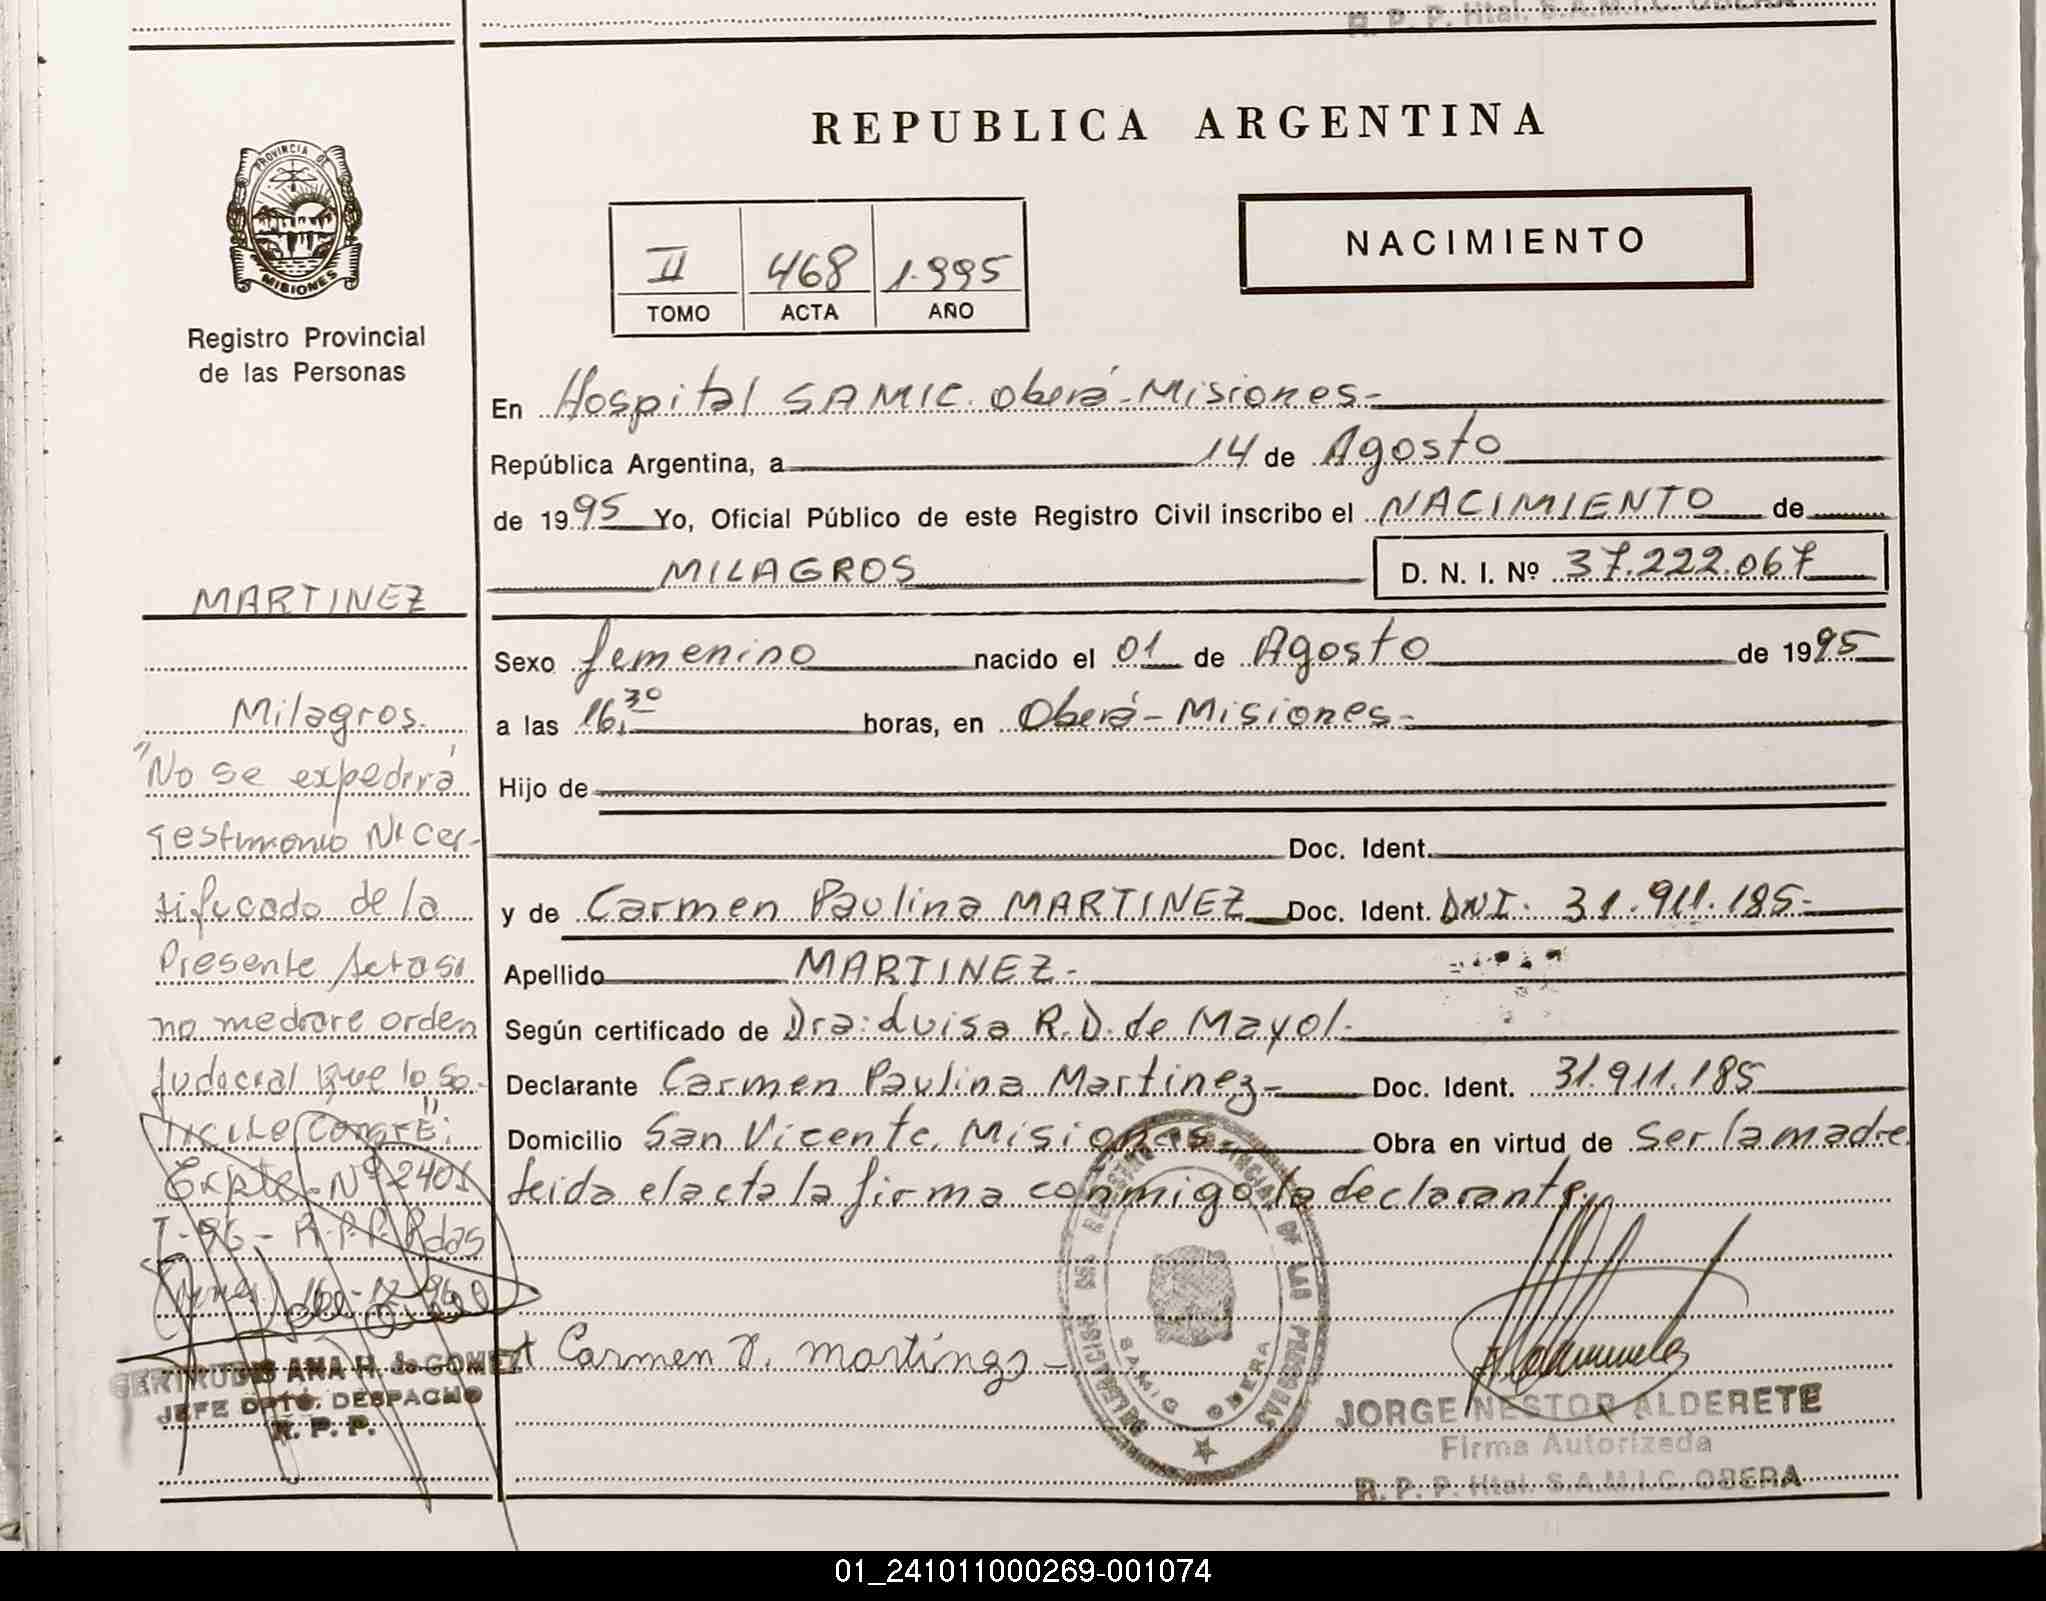 R. P. P. Htal. S.A.M.I.C. OBERA
PROVINCIA DE
MISIONES
Registro Provincial
de las Personas
MARTINEZ
Milagros.
"No se expedirá
Testimonio Ni Cer-
tificado de la
Presente Acta si
no mediare orden
Judicial que lo so-
licite Conste":
Expte. Nº 2401
I-96- R.P.P. Pdas
GERTRUDIS ANA H. de GOMEZ
JEFE DPTO. DESPACHO
R. P. P.
REPUBLICA ARGENTINA
II 468 1.995
TOMO ACTA AÑO
NACIMIENTO
En Hospital SAMIC. Oberá-Misiones-
República Argentina, a 14 de Agosto
de 1995 Yo, Oficial Público de este Registro Civil inscribo el NACIMIENTO de
MILAGROS D. N. I. Nº 37.222.067
Sexo femenino nacido el 01 de Agosto de 1995
a las 16,30 horas, en Oberá-Misiones-
Hijo de
Doc. Ident.
y de Carmen Paulina MARTINEZ Doc. Ident. DNI. 31.911.185-
Apellido MARTINEZ-
Según certificado de Dra: Luisa R.D. de Mayol-
Declarante Carmen Paulina Martinez- Doc. Ident. 31.911.185
Domicilio San Vicente, Misiones- Obra en virtud de ser la madre
leida el acta la firma conmigo la declarante.
Carmen P. martinez-
REGISTRO PROVINCIAL DE LAS PERSONAS
SAMIC OBERA
JORGE NESTOR ALDERETE
Firma Autorizada
R. P. P. Htal. S.A.M.I.C. OBERA
01_241011000269-001074